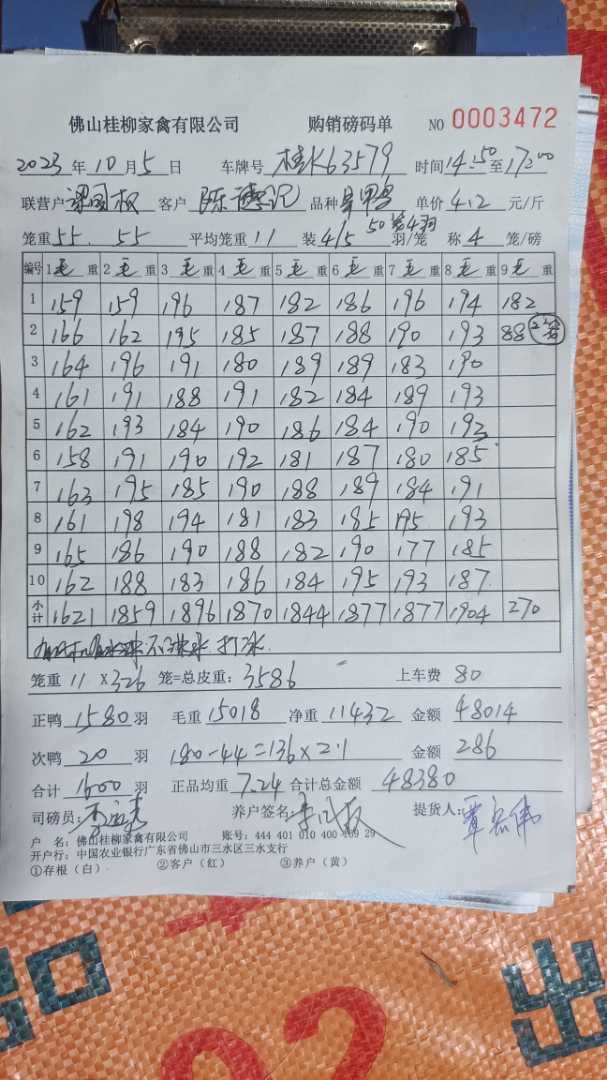 佛山桂柳家禽有限公司 购销磅码单 NO 0003472
2023年10月5日 车牌号 桂K63579 时间14:50至17:00
联营户 客户 陈德记 品种 单价 4.2 元/斤
笼重 55. 55 平均笼重 11 装 4/5 50笼4羽 羽/笼 称 4 笼/磅
编号 1毛重 2毛重 3毛重 4毛重 5毛重 6毛重 7毛重 8毛重 9毛重
1 159 159 196 187 182 186 196 194 182
2 166 162 195 185 187 188 190 193 88 2笼
3 164 196 191 180 189 189 183 190
4 161 191 188 191 182 184 189 193
5 162 193 184 190 186 184 190 192
6 158 191 190 192 181 187 180 185
7 163 195 185 190 188 189 184 191
8 161 198 194 181 183 185 195 193
9 165 186 190 188 182 190 177 185
10 162 188 183 186 184 195 193 187
小计 1621 1859 1896 1870 1844 1877 1877 1904 270
笼重 11 X 326 笼=总皮重: 3586 上车费 80
正鸭 1580 羽 毛重 15018 净重 11432 金额 48014
次鸭 20 羽 180-44=136×2.1 金额 286
合计 1600 羽 正品均重 7.24 合计总金额 48380
司磅员: 养户签名: 提货人:
户 名: 佛山桂柳家禽有限公司 账号: 444 401 010 400 169 29
开户行: 中国农业银行广东省佛山市三水区三水支行
①存根(白) ②客户(红) ③养户(黄)